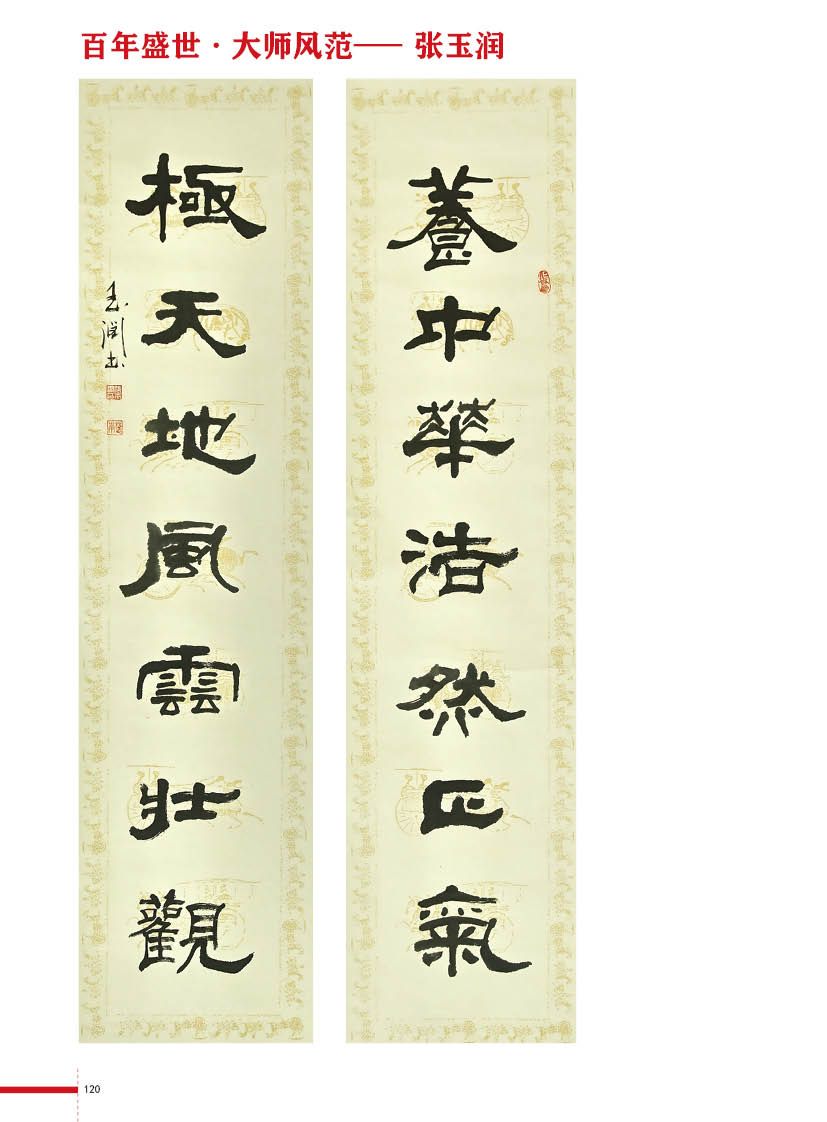 百年盛世·大师风范—— 张玉润
養中華浩然正氣
極天地風雲壯觀
玉润书
120